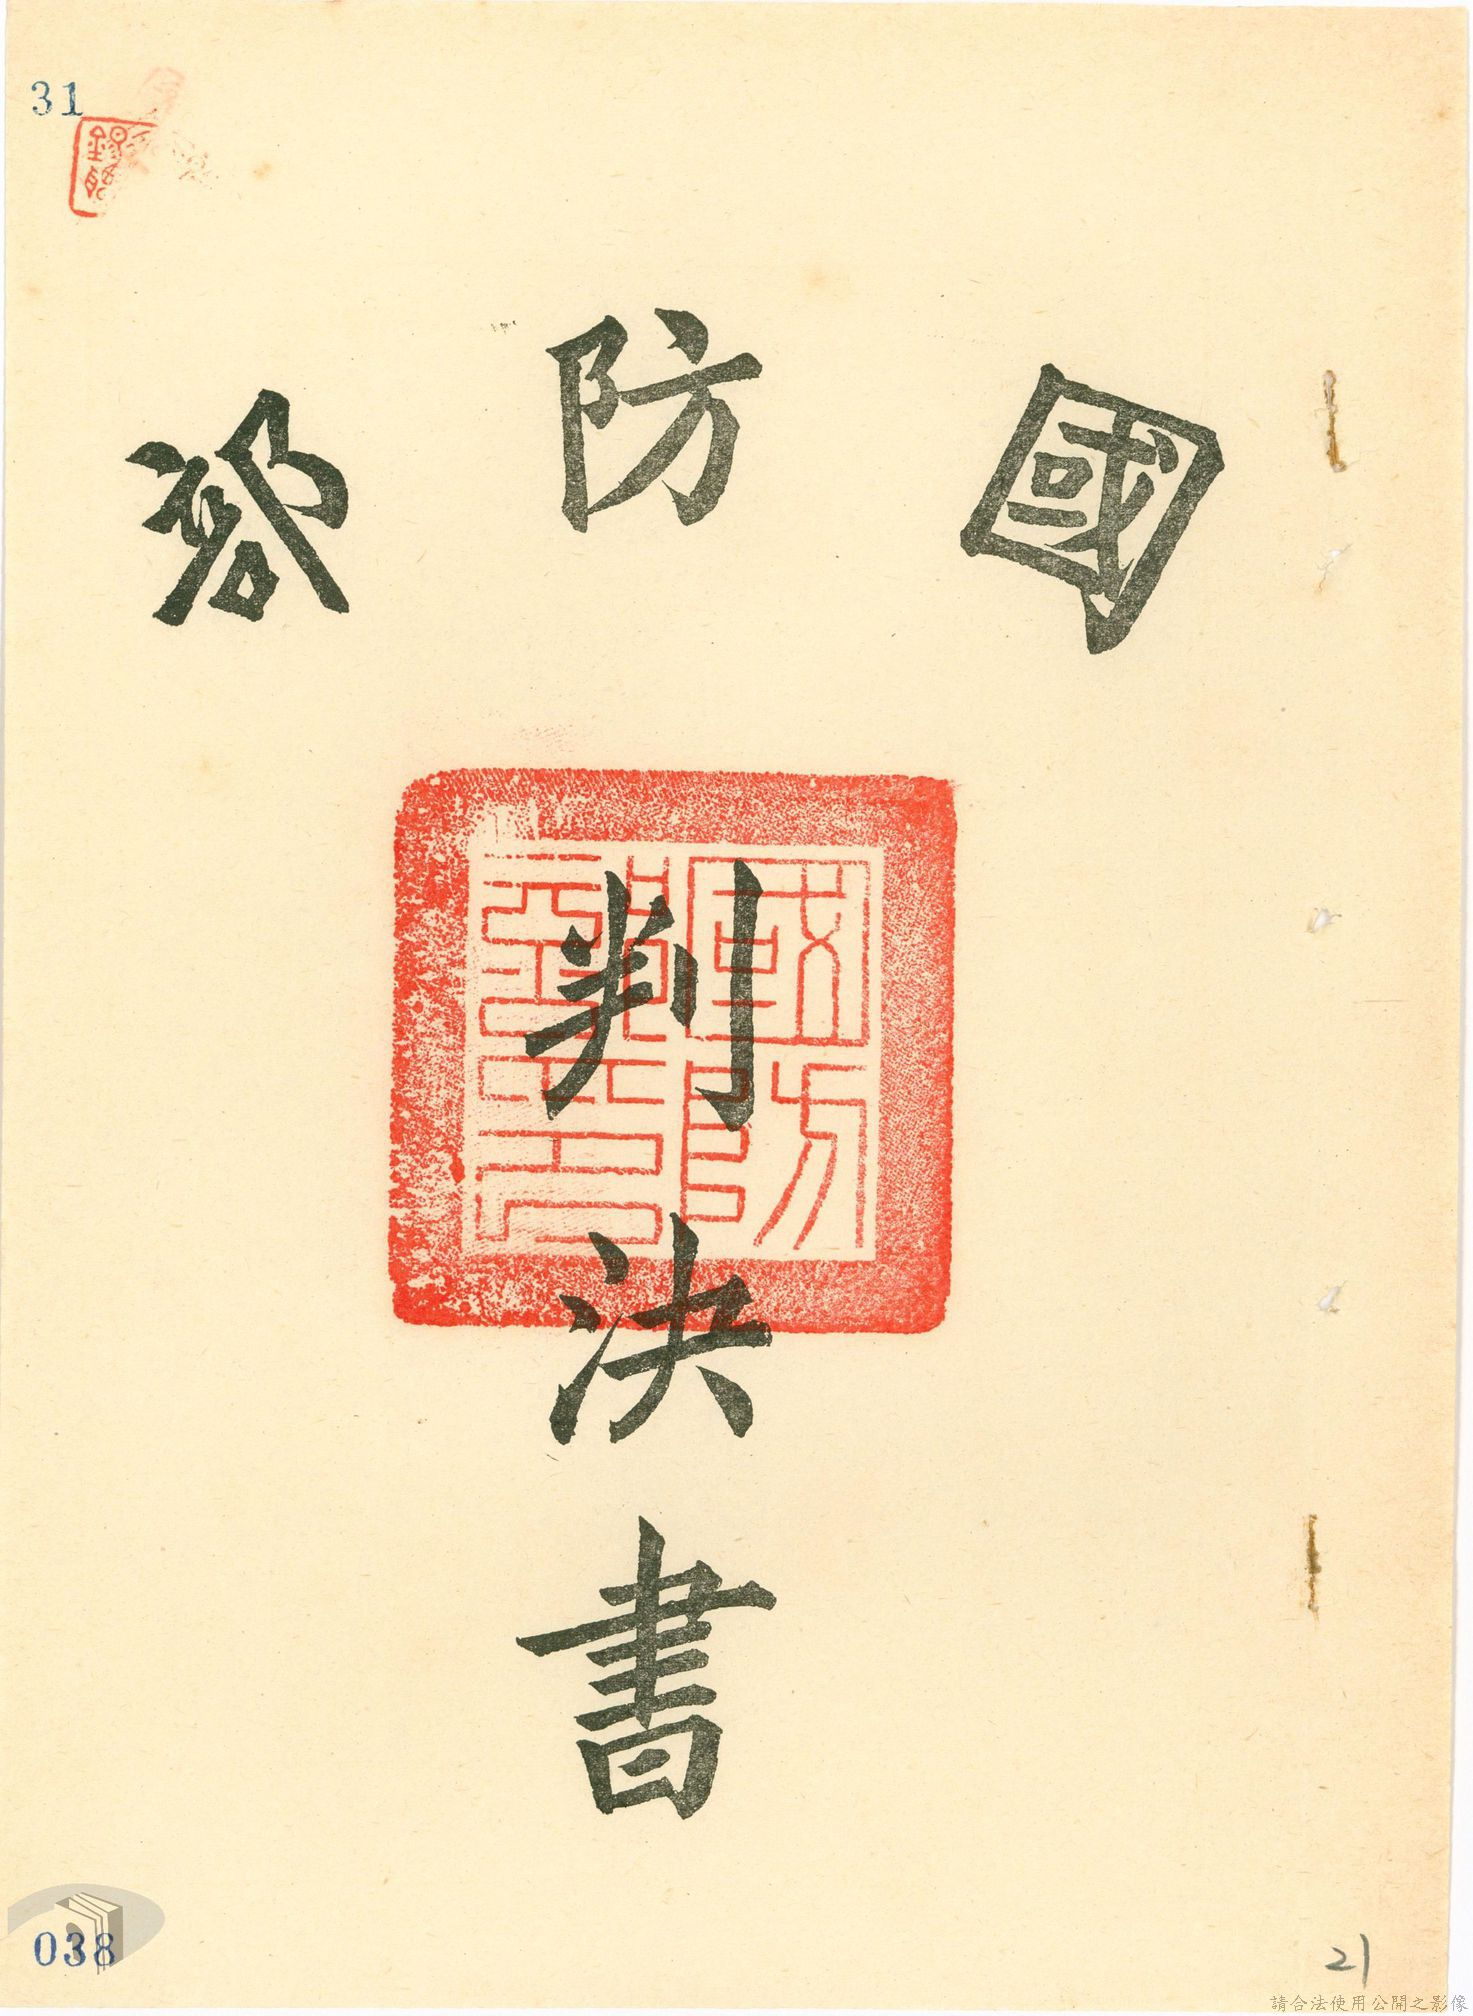 31
國防部
國防部印
判決書
038
21
請合法使用公開之影像